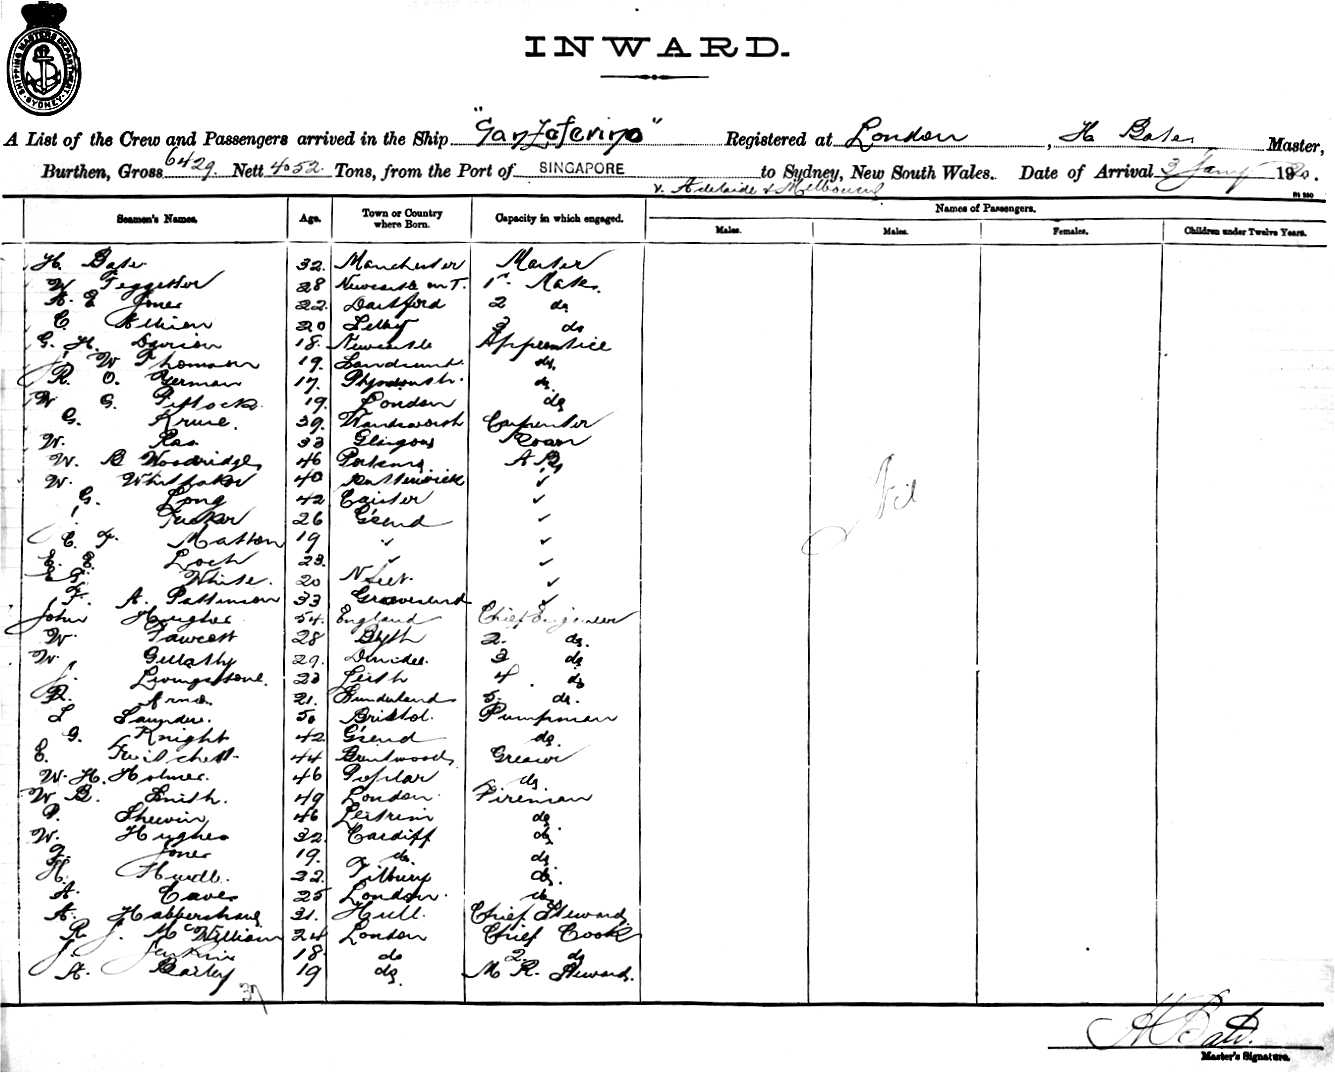 SHIPPING MASTERS DEPARTMENT SYDNEY
INWARD.
A List of the Crew and Passengers arrived in the Ship "San Zeferino" Registered at London, H Bate Master,
Burthen, Gross 6429. Nett 4052. Tons, from the Port of SINGAPORE to Sydney, New South Wales. Date of Arrival 3 Jany 1920.
v. Adelaide & Melbourne
Seamen's Names. Age. Town or Country where Born. Capacity in which engaged. Names of Passengers.
Males. Males. Females. Children under Twelve Years.
H. Bate 32. Manchester Master
W 28 Newcastle on T. 1st Mate.
A. E Jones 22. Dartford 2 do
C. Allison 20 Selby 3 do
G. H. Davison 18. Newcastle Apprentice
J. W Thomson 19. do.
R. O. German 17. Plymouth. do.
W G. 19. London do
G. Kruse. 39. Wandsworth Carpenter
W. Rae 33 Glasgow Bosun
W. B Woodridge 46 AB
W. Whittaker 40 ✓
G. Long 42 Caister ✓
J. Tucker 26 G'send ✓
C. F. Matton 19 ✓ ✓
E. E. Loch 23. ✓ ✓
E G. White. 20 ✓
F. A. Pattinson 33 Gravesend ✓
John Hughes 54. England Chief Engineer
W. Fawcett 28 Blyth 2. do.
W. Gellatly 29. Dundee. 3 do
J. Livingstone. 23 Leith 4. do
R. 21. Sunderland 5. do.
L Saunders. 50 Bristol. Pumpman
G. Knight 42 G'send do.
E. Twitchett. 44 Brentwood Greaser
W. H. Holmes. 46 Poplar do.
W B. Smith. 49 London. Fireman
P. 46 Leitrim do
W. Hughes 32. Cardiff do
J. Jones 19. do. do
H. 22. Tilbury do.
A. Eaves 25 London. do
A. 31. Hull. Chief Steward
R J. McWilliam 24 London Chief Cook
J. Jenkins 18. do 2. do
A. Bailey 19 do. M. R. Steward.
37
Nil
H Bate.
Master's Signature.